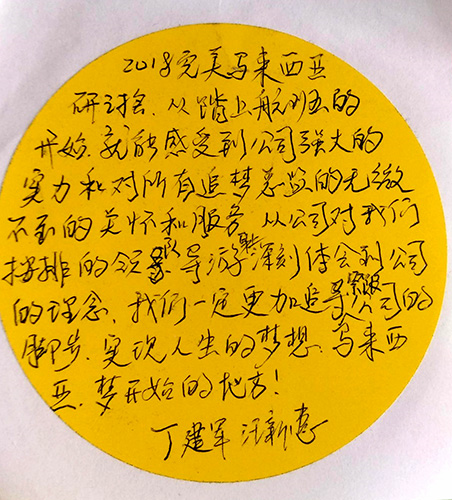 2018完美马来西亚
研讨会、从踏上航班的
开始、就能感受到公司强大的
实力和对所有追梦总监的无微
不至的关怀和服务、从公司对我们
安排的领队导游就深刻体会到公司
的理念、我们一定更加追公司的
脚步、实现人生的梦想、马来西
亚、梦开始的地方!
丁建军 汪新惠